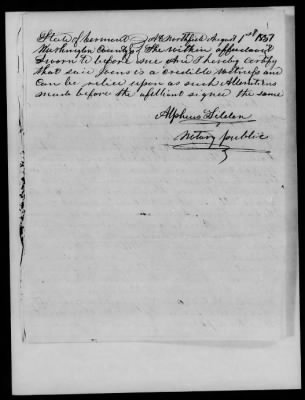 State of Vermont } At Northfield August 1st 1857
Washington County } The within affidavit
Sworn to before me And I hereby certify
that said is a credible Witness and
can be relied upon as such Alterations
made before the affiant signed the same
Alpheus
Notary public